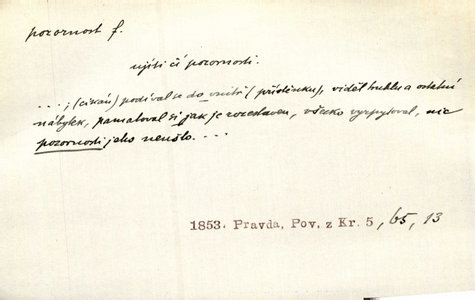 pozornost f.
ujíti čí pozornosti.
...; (cikán) podíval se do vnitř (příslínku), viděl truhlu a ostatní
nábytek, pamatoval si jak je rozestaven, všecko vyzpytoval, nic
pozornosti jeho neušlo. ...
1853. Pravda, Pov. z Kr. 5, 65, 13